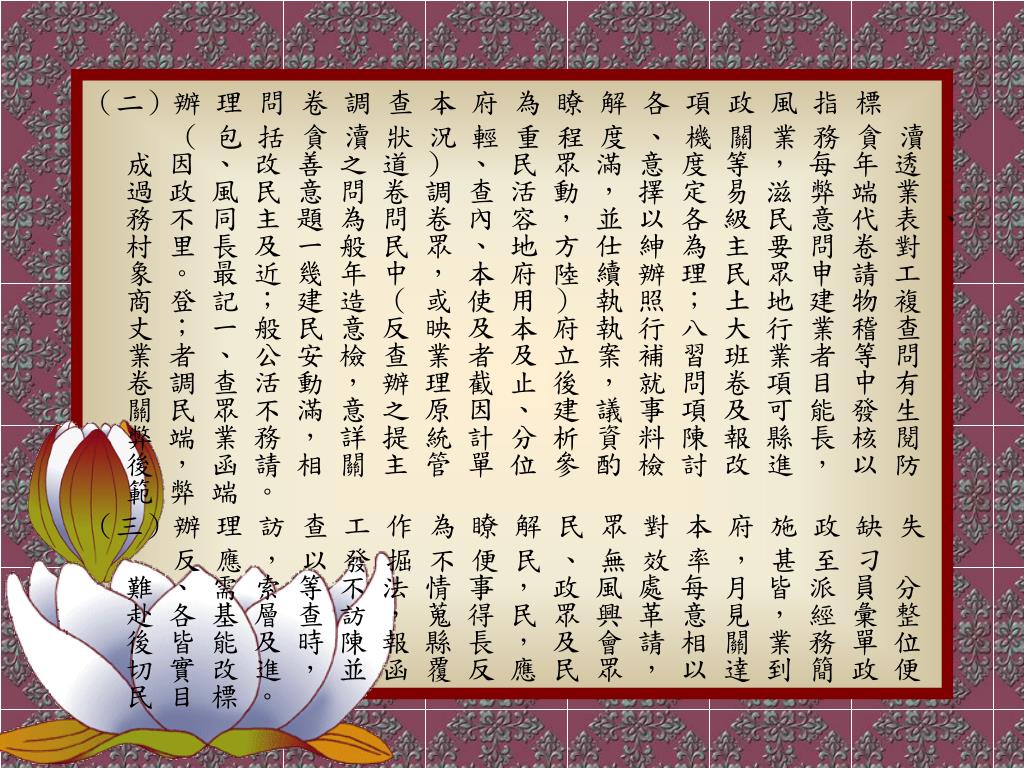 （二）辦理問卷調查本府為瞭解各項政風指標
（包括貪瀆狀況輕重程度、機關業務貪瀆
成因、改善之道）、民眾滿意度等，每年透
過政風民意問卷調查活動，擇定易滋弊端業
務不同主題為問卷內容，並以各級民意代表
村里長及一般民眾、地方仕紳為主要問卷對
象。最近幾年中，本府陸續辦理民眾申請工
商登記；建造（或使用）執照；土地建物複
丈；一般民意反映及本府執行八大行業稽查
業者、公安檢查業者及立案補習班業者等問
卷調查活動，辦理截止後，就問卷項目中有
關民眾不滿意之原因、建議事項及可能發生
弊端業務，詳提統計分析資料陳報縣長核閱
後，函請相關主管單位參酌檢討改進，以防
範弊端。
（三）辦理訪查工作為瞭解民眾對本府施政缺失
反應，以發掘不便民、無效率，甚至刁
難、需索等不法情事，政風處每月皆派員分
赴各基層查訪，蒐得民眾興革意見，經彙整
後皆能及時陳報縣長及會請相關業務單位
切實改進，並函覆反應民眾，以達到簡政便
民目標。